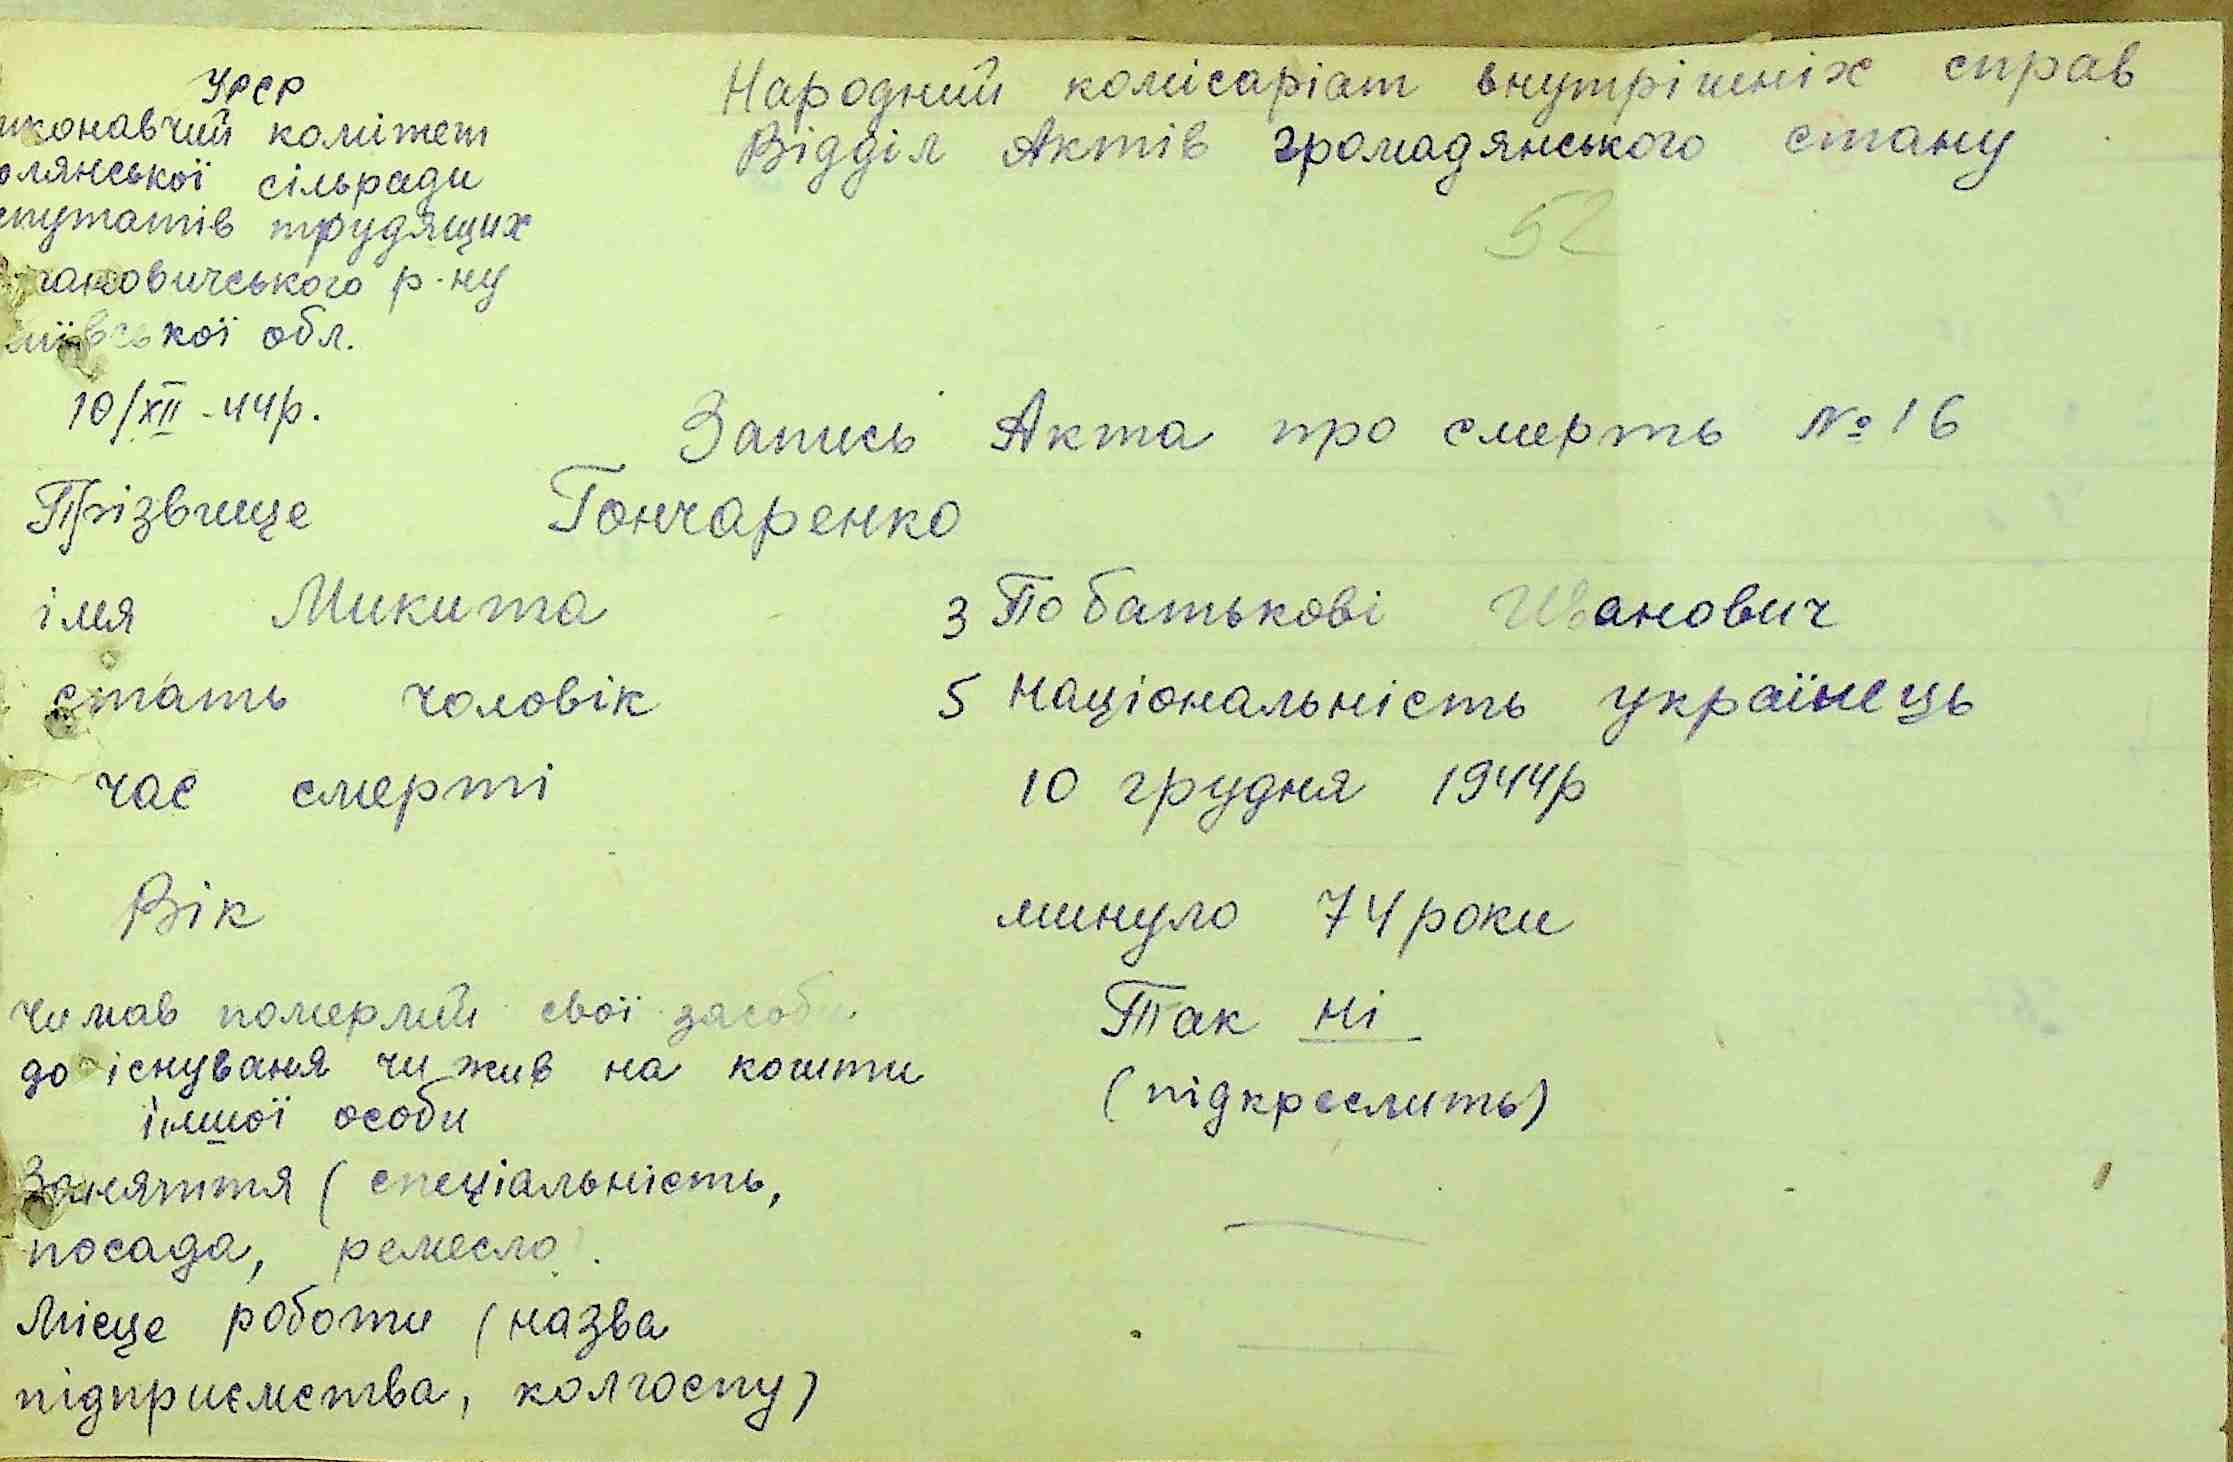 УРСР
иконавчий комітет
олянської сільради
епутатів трудящих
гановичського р-ну
иївської обл.
10/XII - 44р.
Народний комісаріат внутрішніх справ
Відділ Актів громадянського стану
52
Запись Акта про смерть №16
Прізвище Гончаренко
імя Микита 3 По батькові Иванович
стать чоловік 5 Національність українець
час смерті 10 грудня 1944р
Вік минуло 74 роки
Чи мав померлий свої засоби Так Ні
до існуваня чи жив на кошти (підкреслить)
іншої особи
Заняття (спеціальність,
посада, ремесло).
Місце роботи (назва
підприємства, колгоспу)